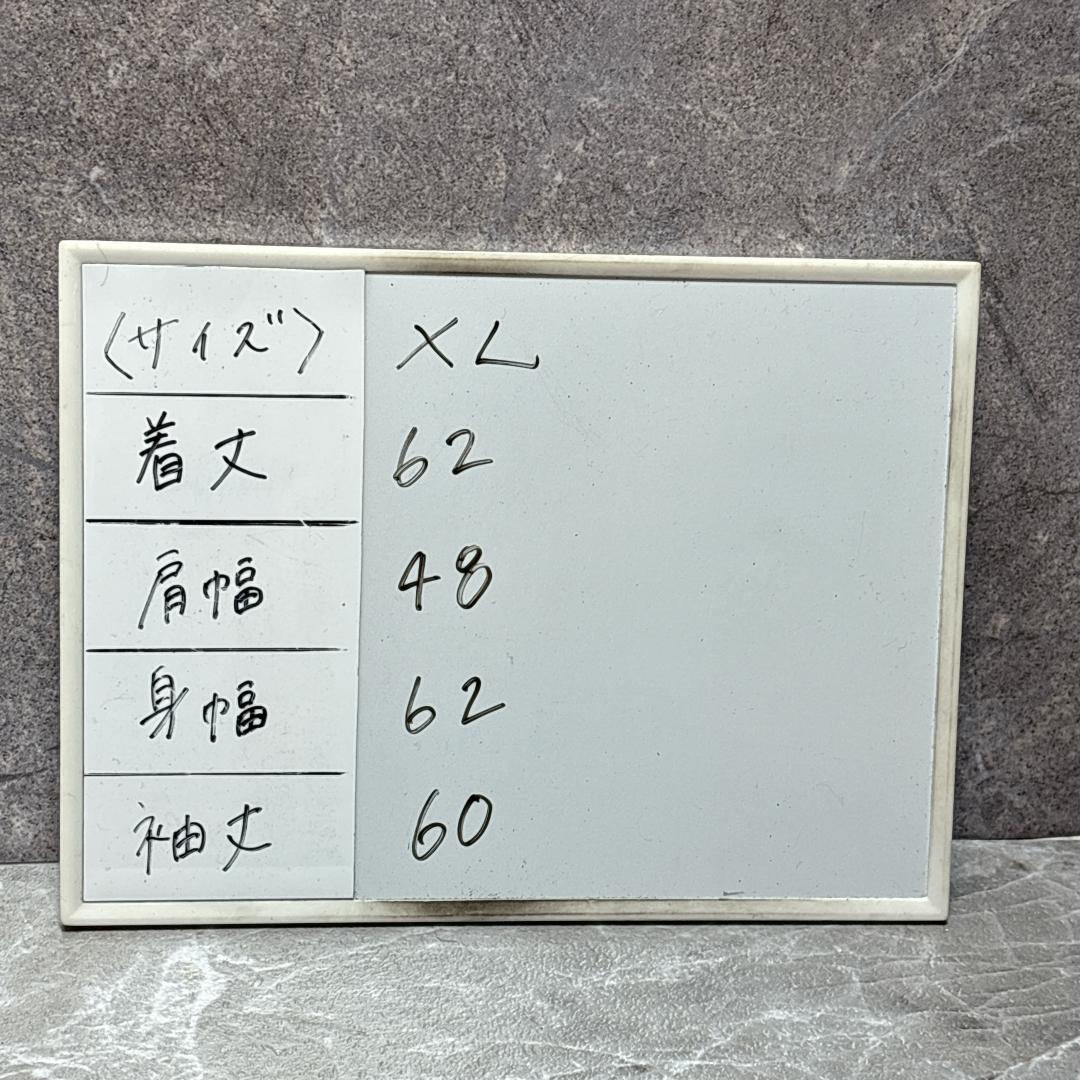 〈サイズ〉 XL
着丈 62
肩幅 48
身幅 62
袖丈 60